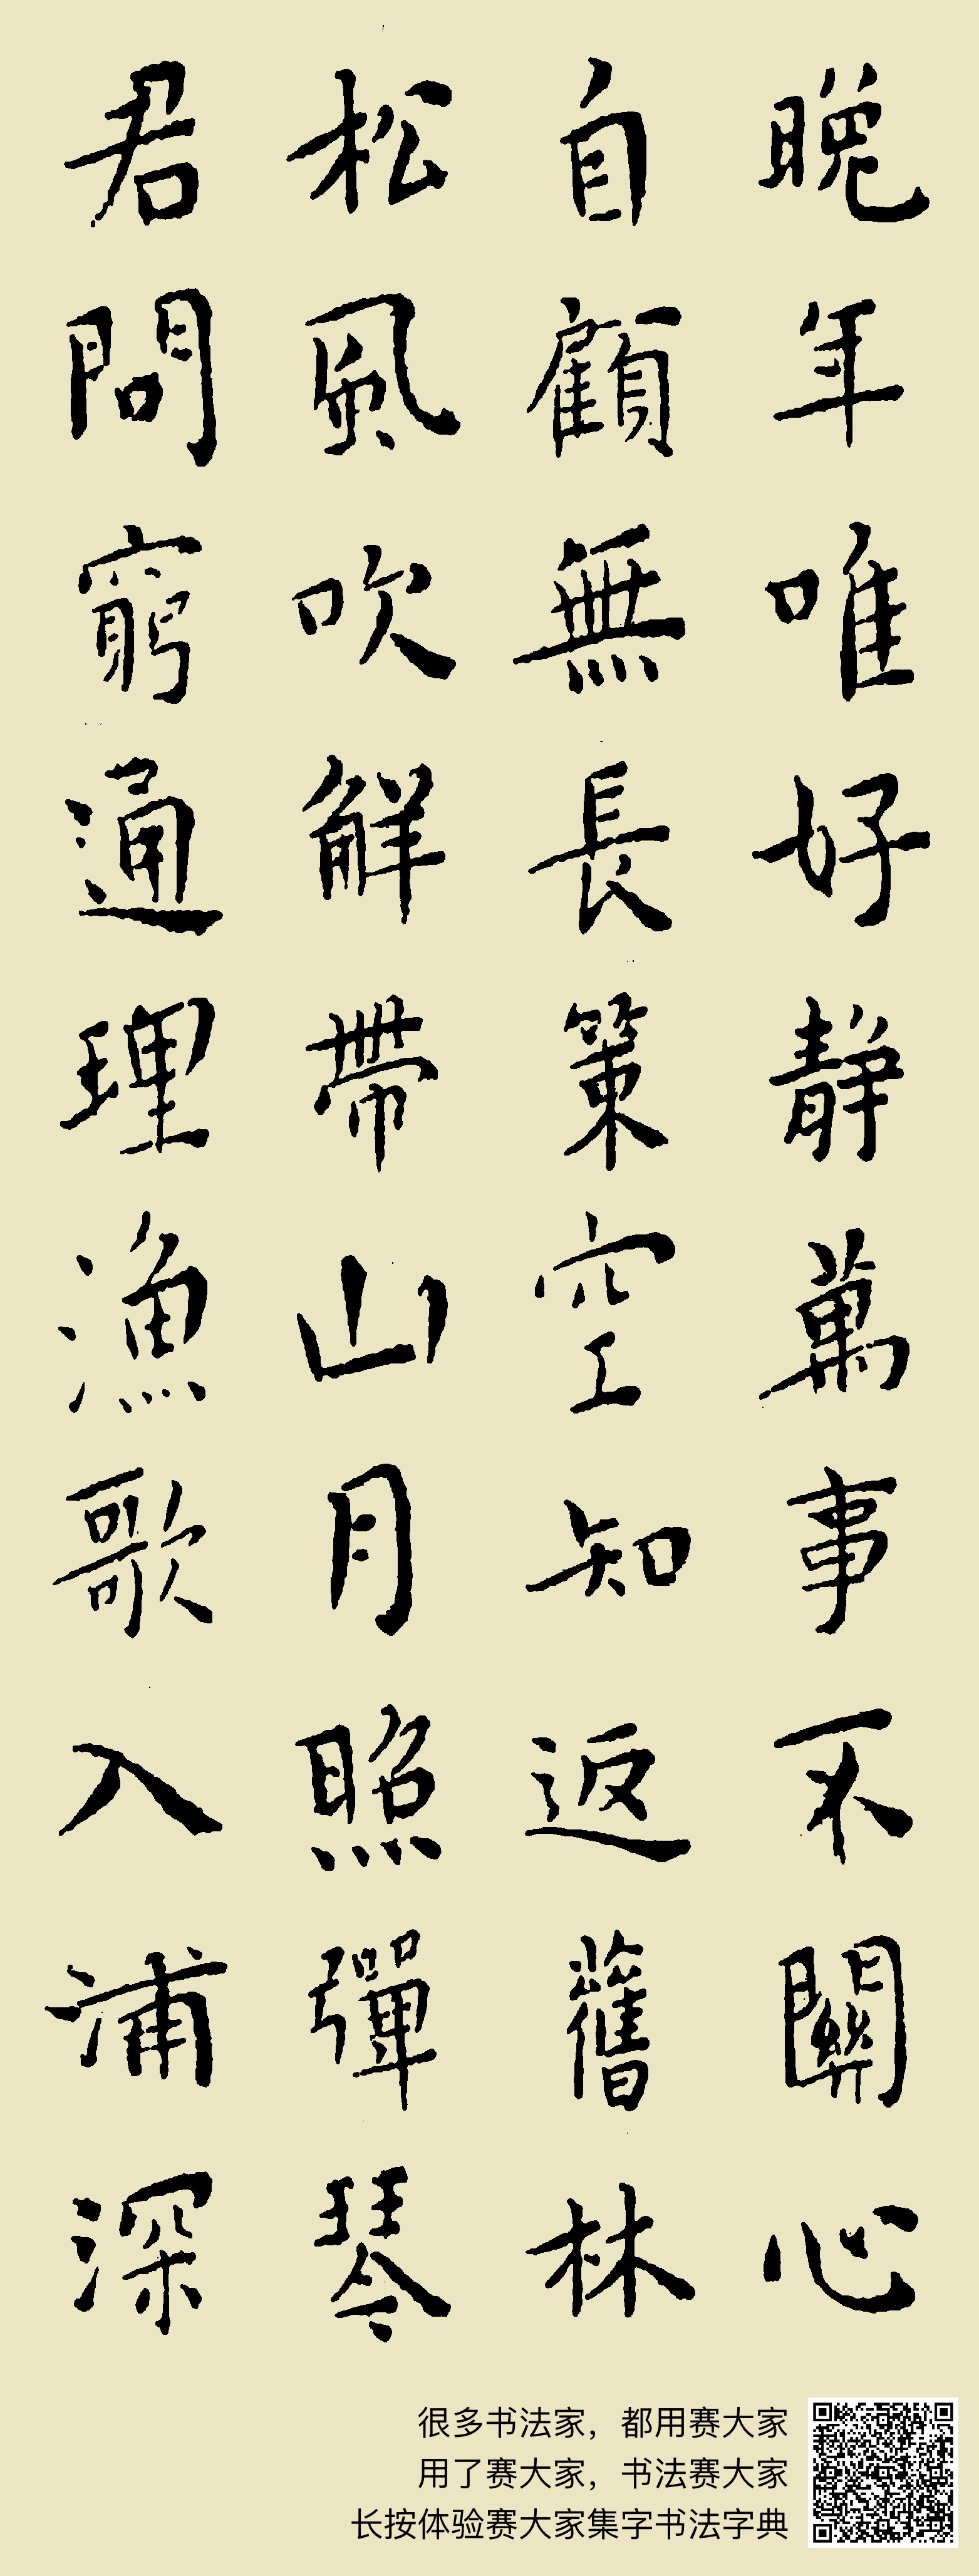 晚年唯好静萬事不關心
自顧無長策空知返舊林
松風吹解帶山月照彈琴
君問窮通理漁歌入浦深
很多书法家，都用赛大家
用了赛大家，书法赛大家
长按体验赛大家集字书法字典